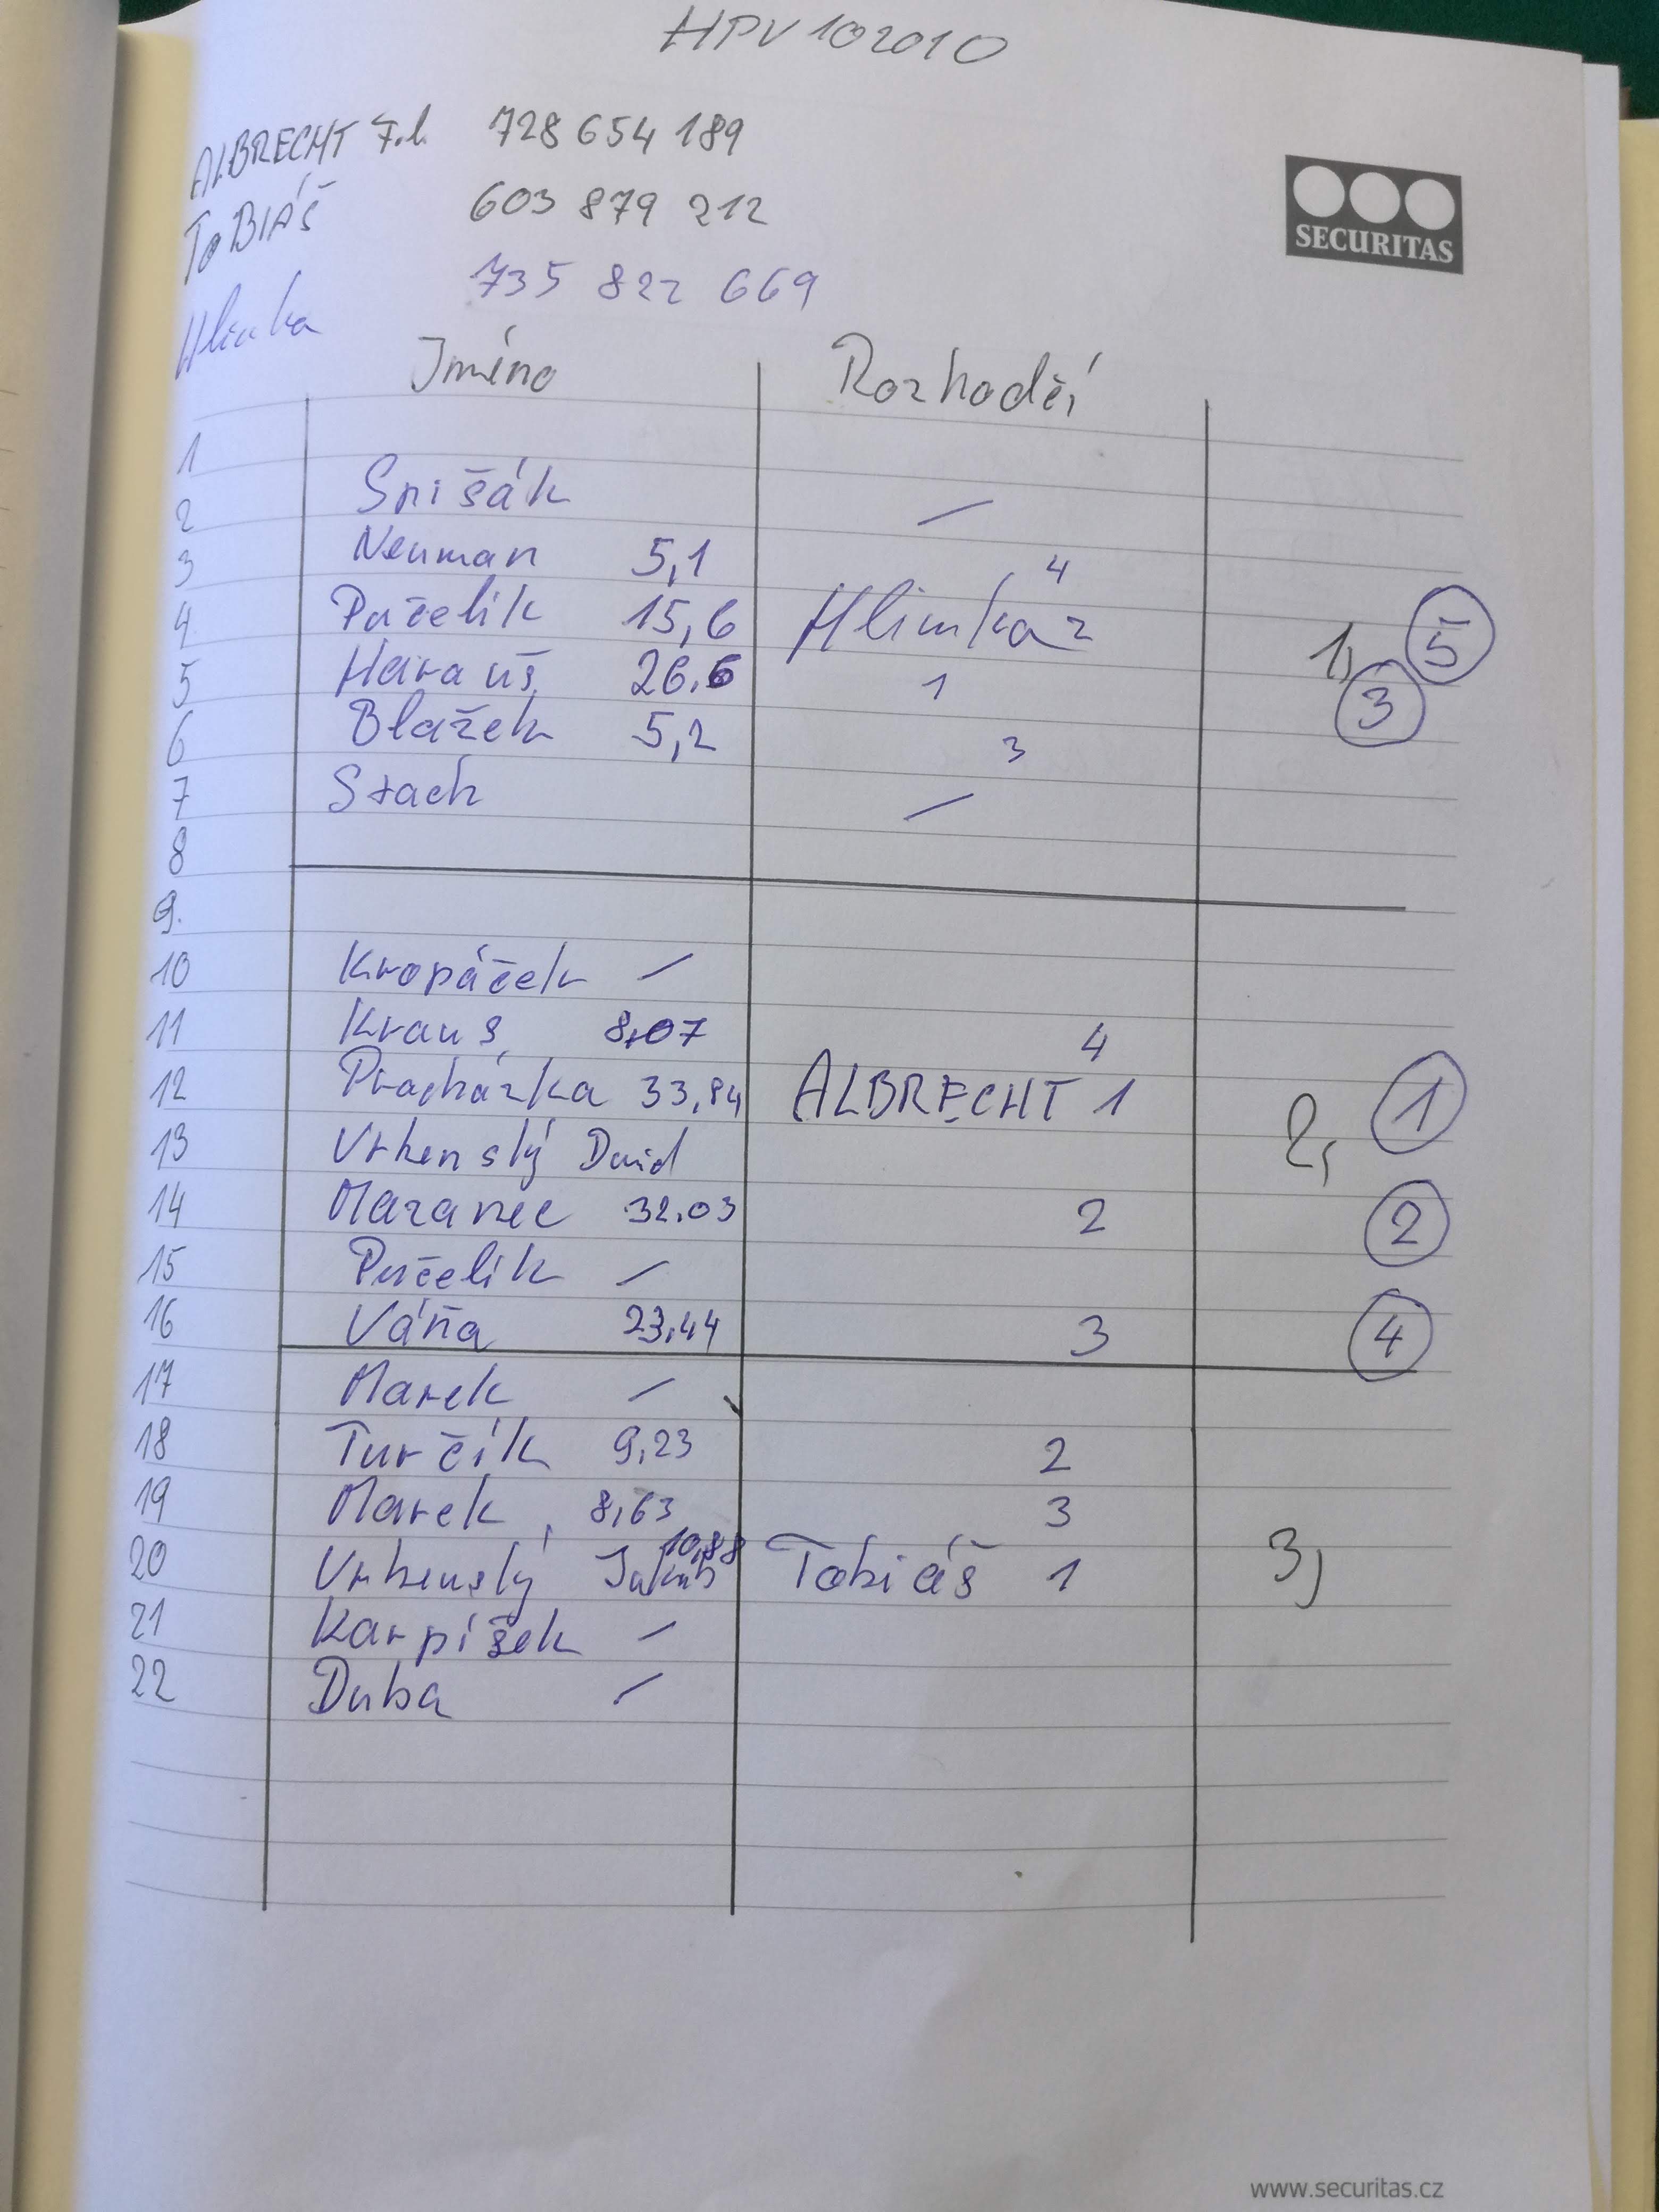 HPV 102010
ALBRECHT 728 654 189
TOBIÁŠ 603 879 212
SECURITAS
Hlinka 735 822 669
Jméno Rozhodčí
1
2 Spišák —
3 Neuman 5,1 4
4 Pučelík 15,6 Hlinka 2 1, 5
5 26.6 1 3
6 Blažek 5,2 3
7 Stach —
8
9.
10 Kropáček —
11 Kraus 8,07 4
12 Procházka 33,84 ALBRECHT 1 2, 1
13 Vrbenský David
14 Mazanec 32.03 2 2
15 Pučelík —
16 Váňa 23,44 3 4
17 Marek —
18 Turčík 9,23 2
19 Marek 8,63 3
20 Vrbenský Jakub 10,88 Tobiáš 1 3,
21 Karpíšek —
22 Duba —
www.securitas.cz